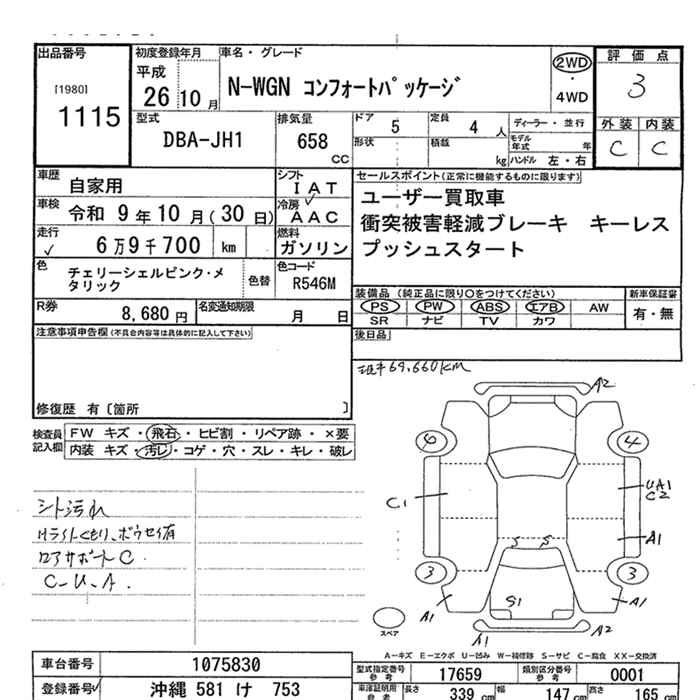 出品番号
[1980]
1115
初度登録年月
平成
26 10 月
車名・グレード
N-WGN コンフォートパッケージ
2WD
・
4WD
評価点
3
外装 内装
C C
型式
DBA-JH1
排気量
658
CC
ドア 5
形状
定員 4 人
積載 kg
ディーラー・並行
モデル年式 年
ハンドル 左・右
車歴
自家用
シフト
I A T
車検 令和 9 年 10 月 ( 30 日)
冷房
A A C
走行 6 万 9 千 700 km
燃料
ガソリン
色
チェリーシェルピンク・メタリック
色替
色コード
R546M
R券 8,680 円
名変通知期限 月 日
セールスポイント(正常に機能するものに限ります)
ユーザー買取車
衝突被害軽減ブレーキ キーレス
プッシュスタート
装備品 (純正品に限り○をつけてください)
PS PW ABS エアB AW
SR ナビ TV カワ
新車保証書
有・無
後日品
注意事項申告欄(不具合内容等は具体的に記入して下さい)
修復歴 有〔箇所 〕
検査員記入欄
FW キズ・飛石・ヒビ割・リペア跡・×要
内装 キズ・汚レ・コゲ・穴・スレ・キレ・破レ
69,660km
シート汚れ
Hライトくもり、ボウセイ有
ロアサポートC
C-U.A.
A2
6
4
C1
UA1
C2
A1
3
3
S S
S1
A1
A1
A1
A2
スペア
A-キズ E-エクボ U-凹み W-補修跡 S-サビ C-腐食 XX-交換済
車台番号 1075830
登録番号 沖縄 581 け 753
型式指定番号 参考 17659
類別区分番号 参考 0001
車庫証明用 参考
長さ 339 cm
幅 147 cm
高さ 165 cm